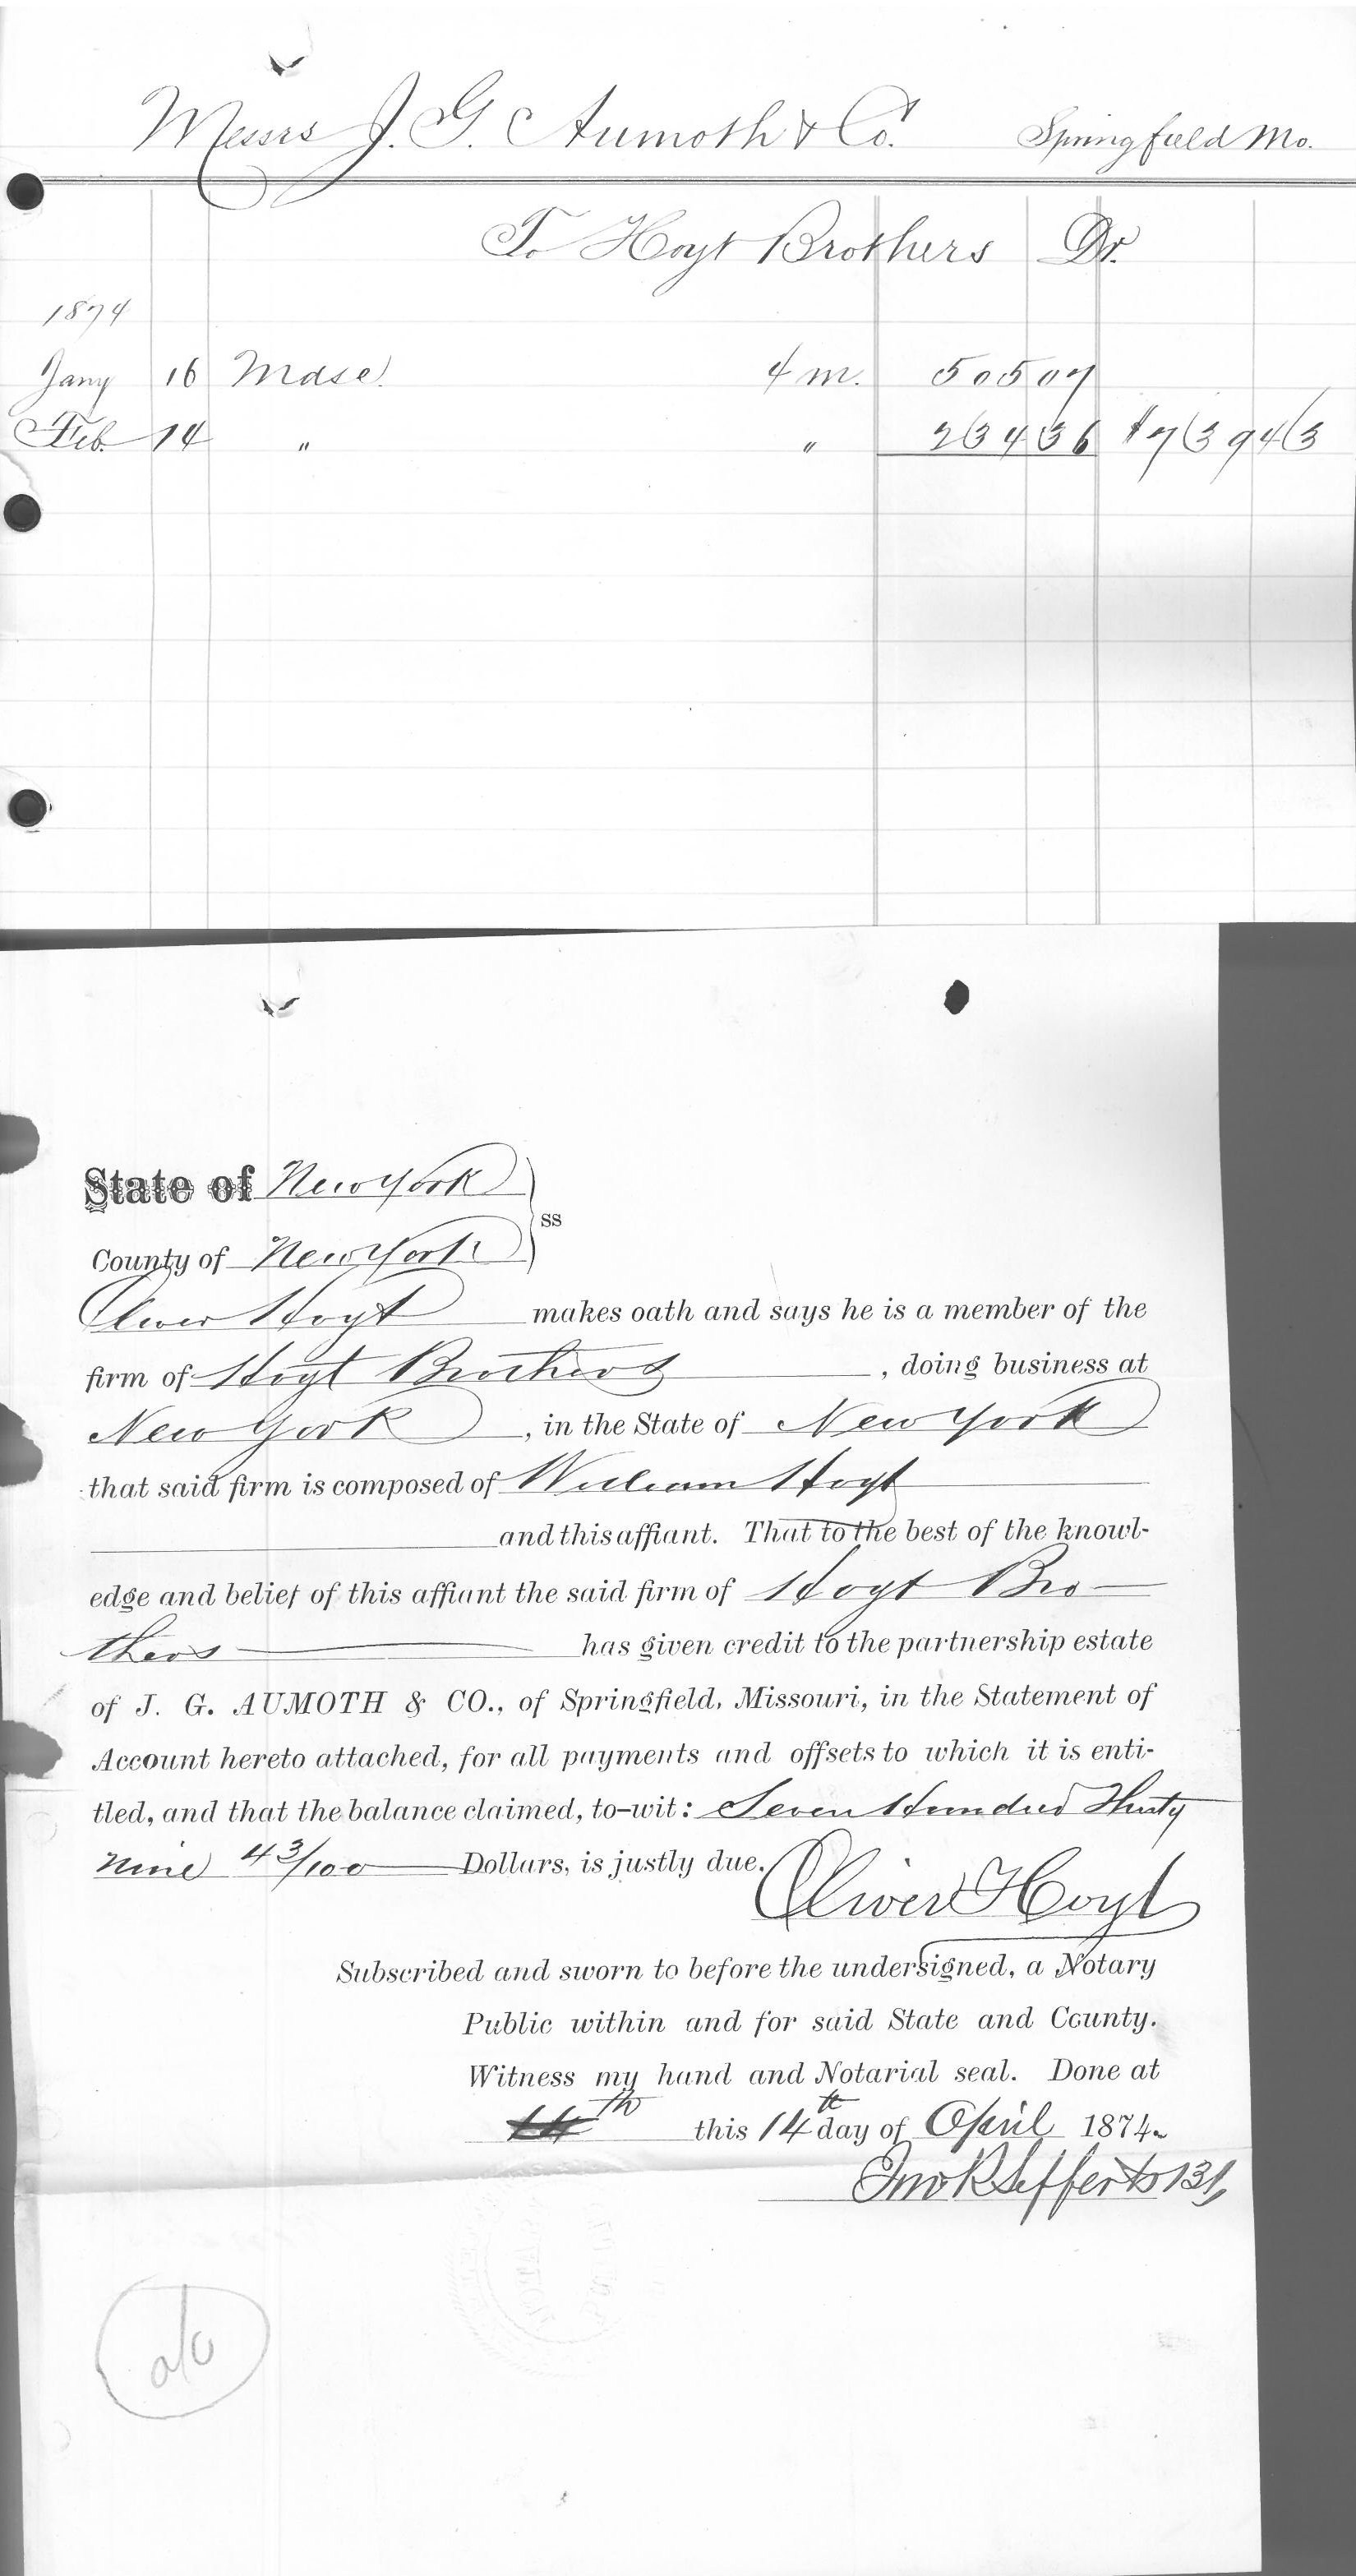 Messrs J. G. Aumoth & Co. Springfield Mo.
To Hoyt Brothers Dr.
1874
Jany 16 Mdse. 4 m. 505 07
Feb. 14 " " 234 36 $739 43
State of New York
ss
County of New York
Oliver Hoyt makes oath and says he is a member of the
firm of Hoyt Brothers, doing business at
New York, in the State of New York
that said firm is composed of William Hoyt
and this affiant. That to the best of the knowl-
edge and belief of this affiant the said firm of Hoyt Bro-
thers has given credit to the partnership estate
of J. G. AUMOTH & CO., of Springfield, Missouri, in the Statement of
Account hereto attached, for all payments and offsets to which it is enti-
tled, and that the balance claimed, to-wit: Seven Hundred Thirty
nine 43/100 Dollars, is justly due.
Oliver Hoyt
Subscribed and sworn to before the undersigned, a Notary
Public within and for said State and County.
Witness my hand and Notarial seal. Done at
14th this 14th day of April 1874.
Jno R Lefferts
a/c